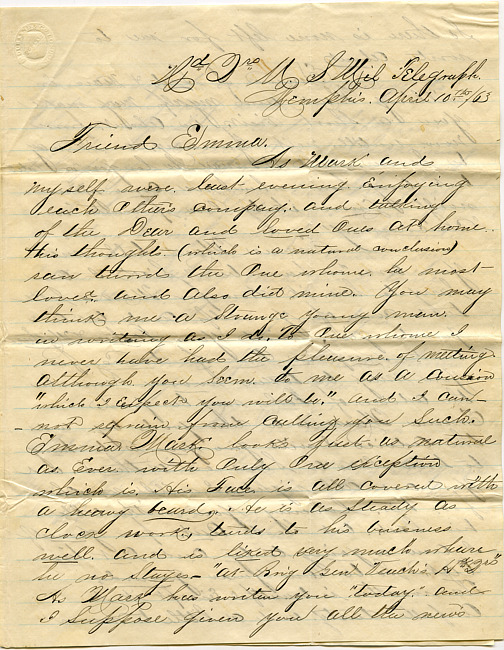 Hd Qrs U S Mil Telegraph.
Memphis. April 10th /63
Friend Emma.
As Mark and
myself were last evening Enjoying
each others company. and talking
of the Dear and loved Ones at home.
his thoughts (which is a natural conclusion)
ran towards the One whome he most
loves. and also did mine. You may
think me a Strange young man.
in writing as I do. to One whome I
never have had the pleasure of meeting
although you seem to me as a cousin
"which I expect you will be." and I can-
not refrain from calling you Such.
Emma Mark looks just as natural
as Ever. with Only One exception
which is. His Face is all covered with
a heavy beard. He is as Steady as
clock work, tends to his buisness
well. and is liked very much where
he no Stays - "at Brig Genl Veatch's Hd Qrs"
As Mark has writen you "today" and
I Suppose given you all the news